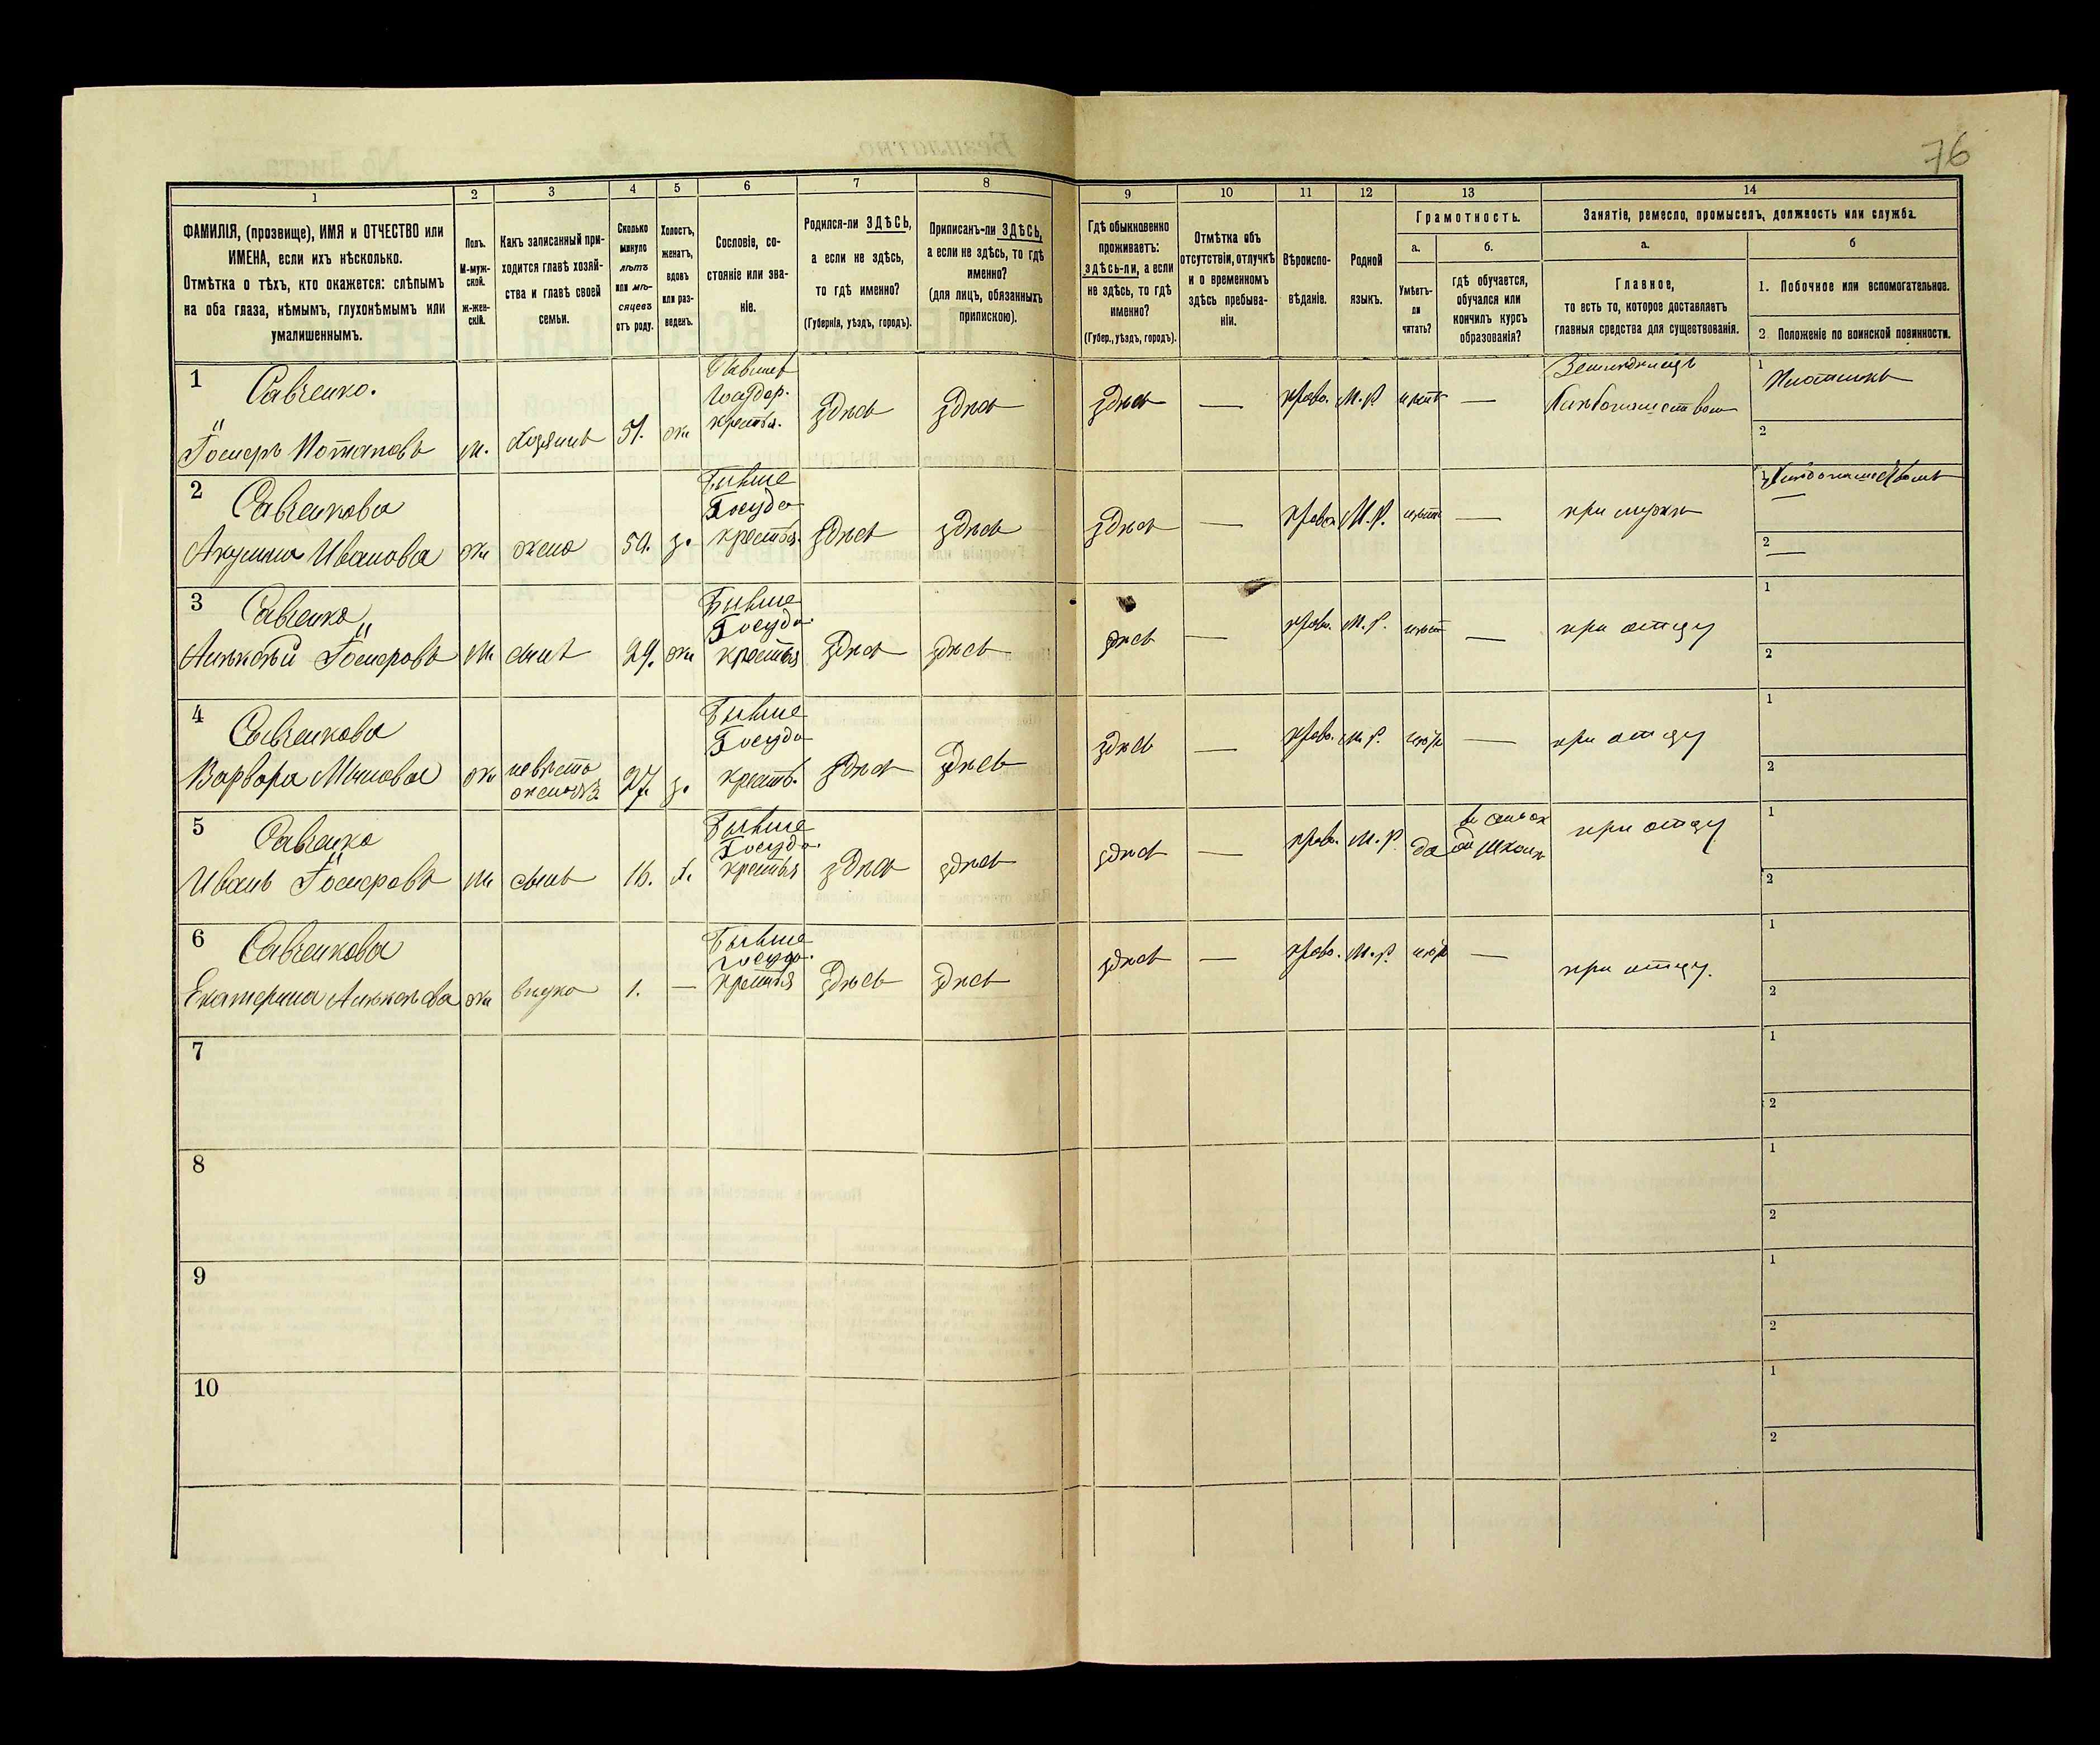 76
1
2
3
4
5
6
7
8
9
10
11
12
13
14
ФАМИЛІЯ, (прозвище), ИМЯ и ОТЧЕСТВО или
ИМЕНА, если ихъ нѣсколько.
Отмѣтка о тѣхъ, кто окажется: слѣпымъ
на оба глаза, нѣмымъ, глухонѣмымъ или
умалишеннымъ.
Полъ.
М-муж-
ской.
ж-жен-
скій.
Какъ записанный при-
ходится главѣ хозяй-
ства и главѣ своей
семьи.
Сколько
минуло
лѣтъ
или мѣ-
сяцевъ
отъ роду.
Холостъ,
женатъ,
вдовъ
или раз-
веденъ.
Сословіе, со-
стояніе или зва-
ніе.
Родился-ли ЗДѢСЬ,
а если не здѣсь,
то гдѣ именно?
(Губернія, уѣздъ, городъ).
Приписанъ-ли ЗДѢСЬ,
а если не здѣсь, то гдѣ
именно?
(для лицъ, обязанныхъ
припискою).
Гдѣ обыкновенно
проживаетъ:
здѣсь-ли, а если
не здѣсь, то гдѣ
именно?
(Губер., уѣздъ, городъ).
Отмѣтка объ
отсутствіи, отлучкѣ
и о временномъ
здѣсь пребыва-
ніи.
Вѣроиспо-
вѣданіе.
Родной
языкъ.
Грамотность.
а.
Умѣетъ-
ли
читать?
б.
гдѣ обучается,
обучался или
кончилъ курсъ
образованія?
Занятія, ремесло, промыселъ, должность или служба.
а.
Главное,
то есть то, которое доставляетъ
главныя средства для существованія.
б
1. Побочное или вспомогательное.
2 Положеніе по воинской повинности.
1
Савченко.
Потаповъ м. Хозяинъ 51. ж
Государ.
крестья.
здѣсь здѣсь здѣсь — право. М. Р. нѣтъ —
Земледѣлецъ
1
Плотникъ
2
2
Савченкова
Акулина Иванова ж жена 50. з.
Бывше
Госуда
крестья.
здѣсь здѣсь здѣсь — право М. Р. нѣтъ — при мужѣ
1
2
3
Савченко
Алексѣй м сынъ 29. ж
Бывше
Госуда
крестья
здѣсь здѣсь здѣсь — право. М. Р. нѣтъ — при отцу
1
2
4
Савченкова
Варвара ж невѣста 27. з.
Бывше
Госуда
кресть.
здѣсь здѣсь здѣсь — право. М. Р. — при отцу
1
2
5
Савченко
Иванъ м сынъ 16. х.
Бывше
Госуда.
крестья
здѣсь здѣсь здѣсь — право. М. Р. да
школѣ
при отцу
1
2
6
Савченкова
Екатерина ж внука 1. —
Бывше
Госуда.
крестья
здѣсь здѣсь здѣсь — право. М. Р. — при отцу.
1
2
7
1
2
8
1
2
9
1
2
10
1
2